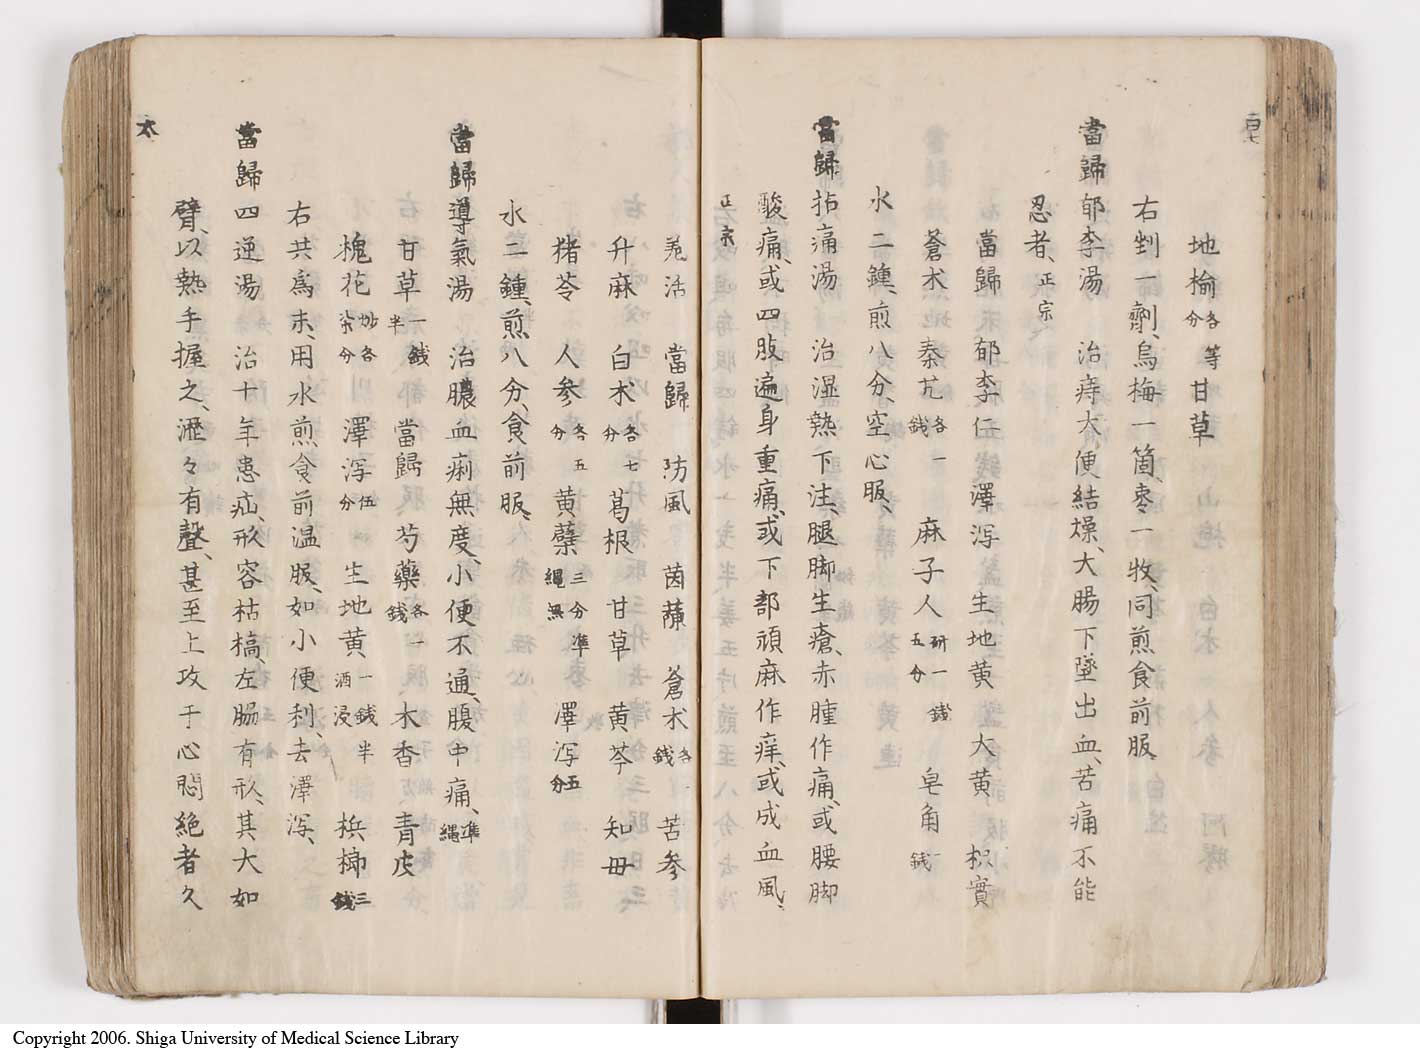 百七
地榆各等分 甘草
右剉一劑、烏梅一箇、枣一牧、同煎食前服
當歸郁李湯 治痔大便結燥、大腸下墜出血、苦痛不能
忍者、正宗
當歸 郁李仁 澤泻 生地黄 大黄 枳實
蒼术 秦艽各一錢 麻子人研一錢五分 皂角一錢
水二鍾、煎八分、空心服、
當歸拈痛湯 治湿熱下注、腿脚生瘡、赤腫作痛、或腰脚
酸痛、或四肢遍身重痛、或下部頑麻作痒、或成血風、
正宗
羌活 當歸 防風 茵蔯 蒼术各錢 苦参
升麻 白术各七分 葛根 甘草 黄芩 知母
猪苓 人参各五分 黄蘗三分 準繩無 澤泻五分
水二鍾、煎八分、食前服、
當歸導氣湯 治膿血痢無度、小便不通、腹中痛、準繩
甘草一錢半 當歸 芍藥各一錢 木香 青皮
槐花炒各柒分 澤泻伍分 生地黄一錢半酒浸 梹榔三錢
右共爲末、用水煎食前温服、如小便利、去澤泻、
當歸四逆湯 治廿年患疝、形容枯槁、左腸有形、其大如
臂、以熱手握之、瀝々有聲、甚至上攻于心悶絶者久
太
Copyright 2006. Shiga University of Medical Science Library